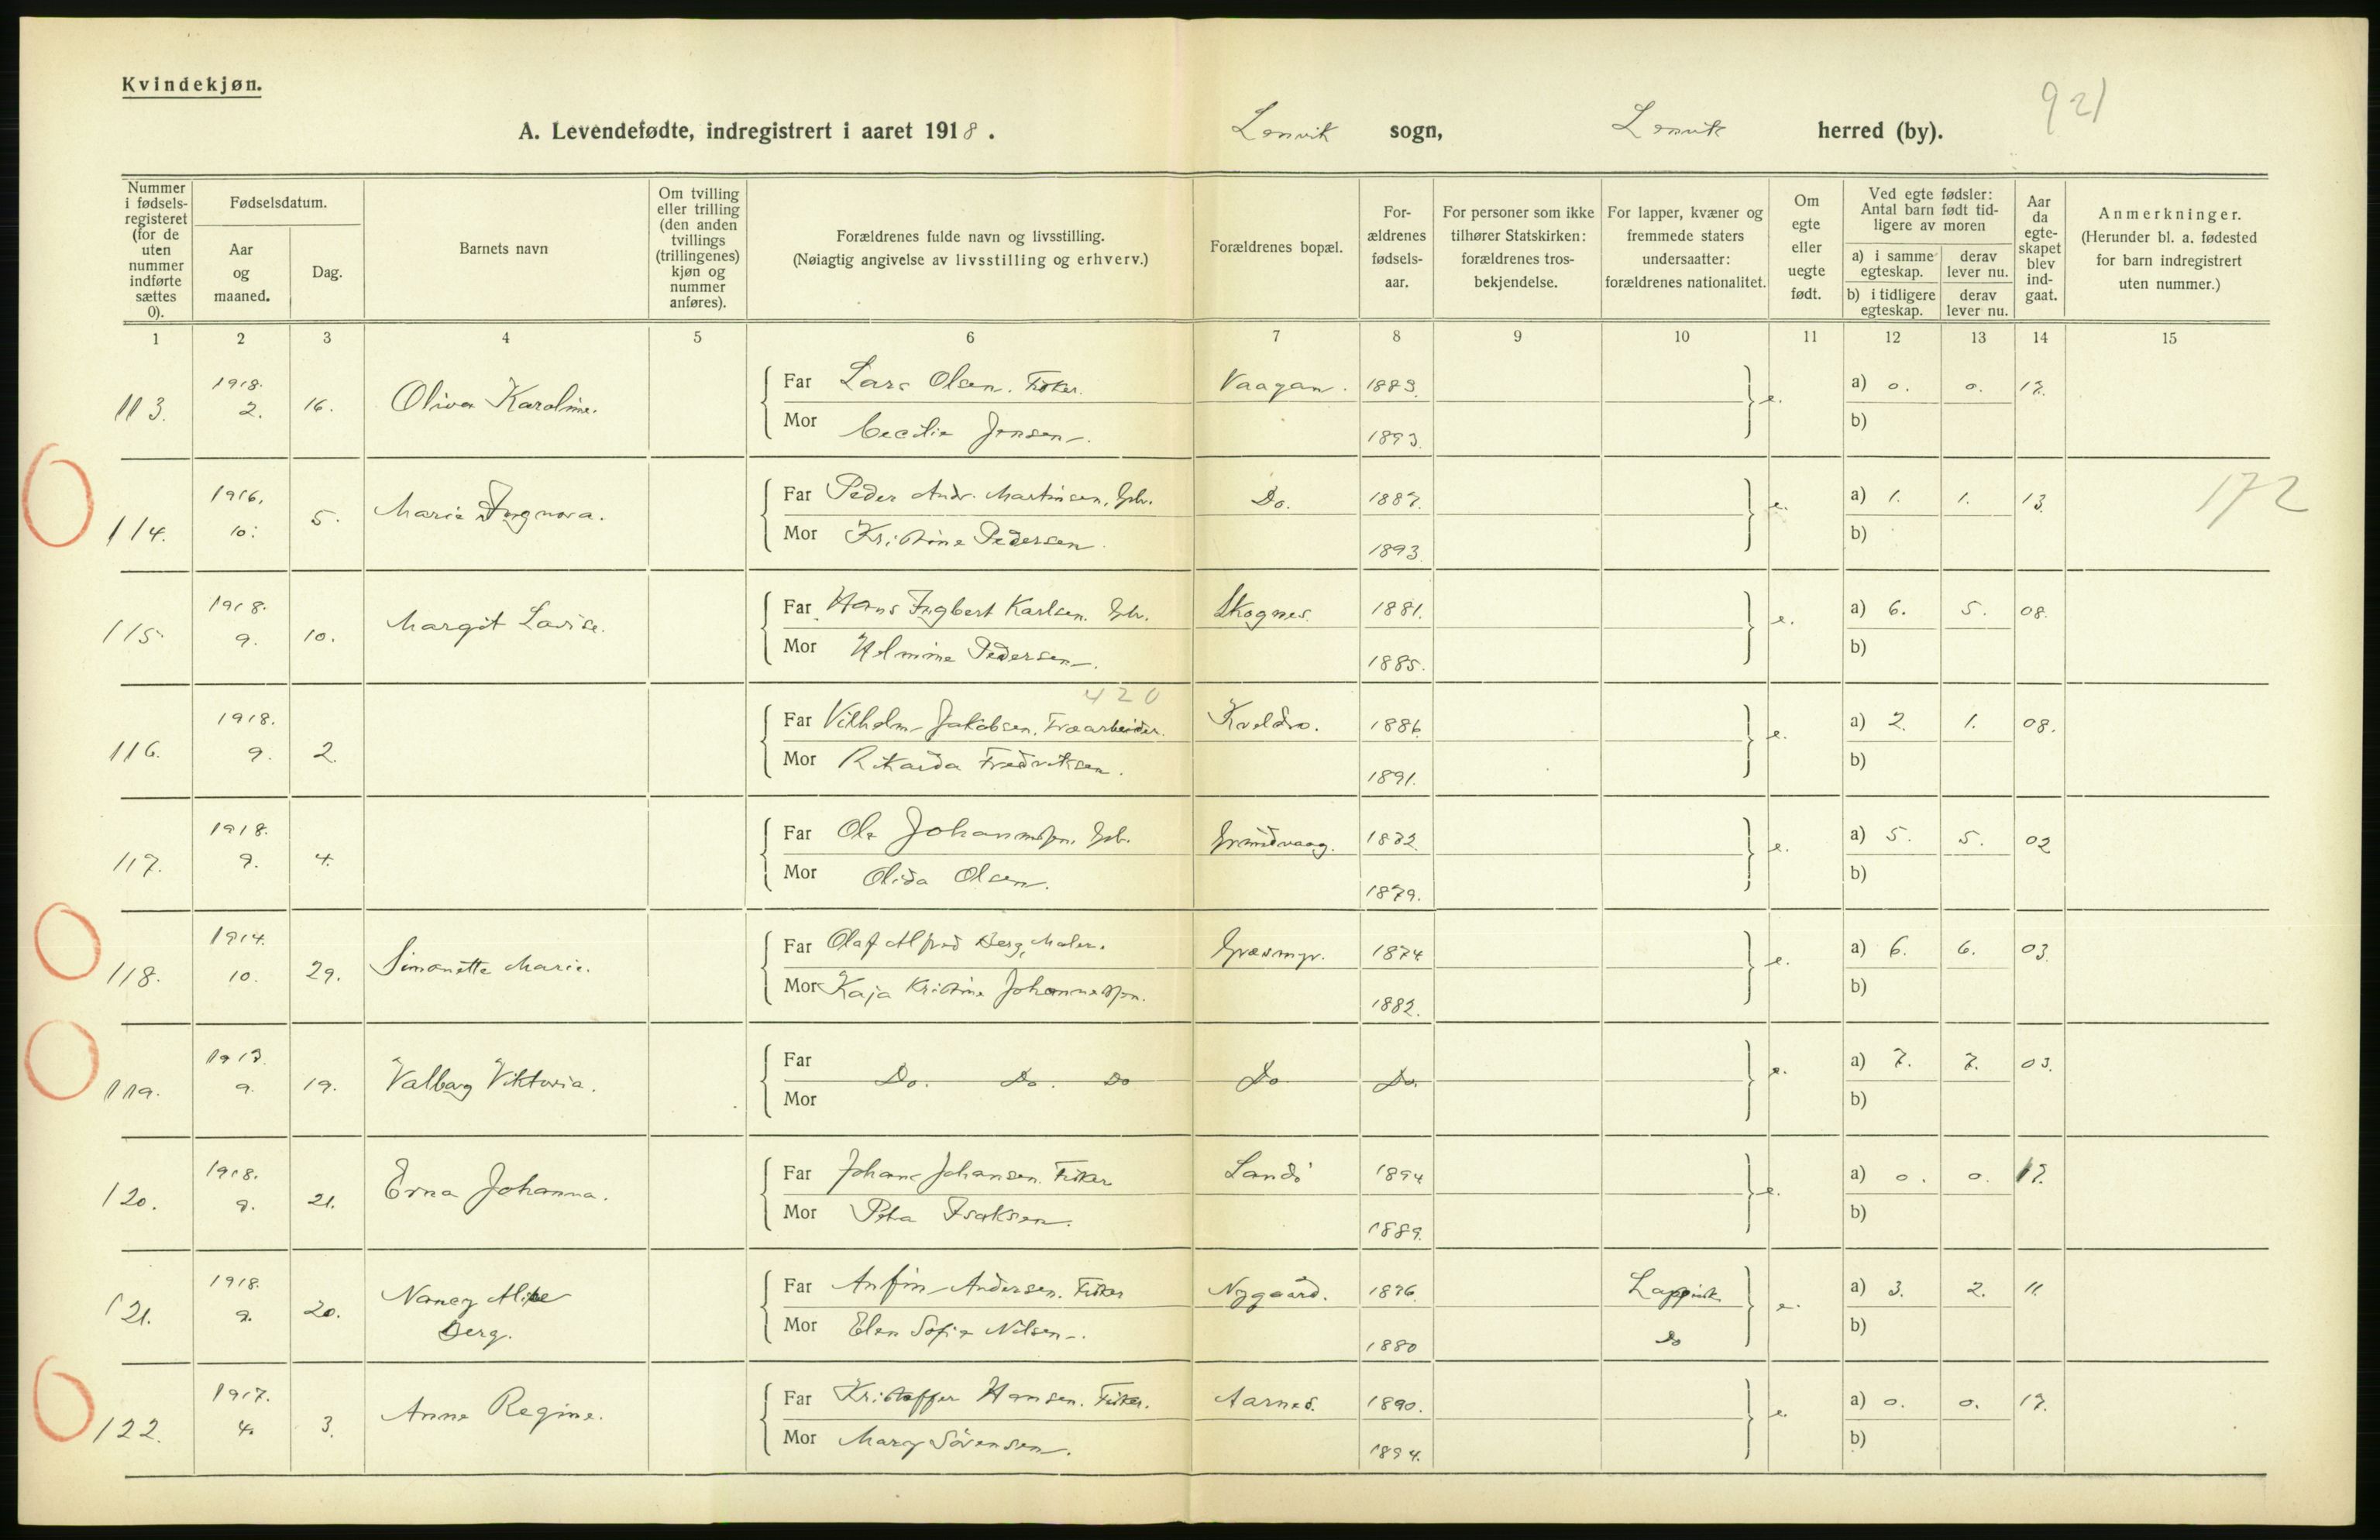 Kvindekjøn.
921
A. Levendefødte, indregistrert i aaret 1918. Lenvik sogn, Lenvik herred (by).
Nummer i fødsels-registeret (for de uten nummer indførte sættes 0).
Fødselsdatum.
Aar og maaned.
Dag.
Barnets navn
Om tvilling eller trilling (den anden tvillings (trillingenes) kjøn og nummer anføres).
Forældrenes fulde navn og livsstilling.
(Nøiagtig angivelse av livsstilling og erhverv.)
Forældrenes bopæl.
For-ældrenes fødsels-aar.
For personer som ikke tilhører Statskirken: forældrenes tros-bekjendelse.
For lapper, kvæner og fremmede staters undersaatter: forældrenes nationalitet.
Om egte eller uegte født.
Ved egte fødsler: Antal barn født tid-ligere av moren
a) i samme egteskap.
derav lever nu.
b) i tidligere egteskap.
derav lever nu.
Aar da egte-skapet blev ind-gaat.
Anmerkninger.
(Herunder bl. a. fødested for barn indregistrert uten nummer.)
1 2 3 4 5 6 7 8 9 10 11 12 13 14 15
113. 1918. 2. 16. Oliva Karoline. Far Lars Olsen. Fisker. Vaagan. 1883. e. a) 0. 0. 17.
Mor Cecilie Jensen. 1893. b)
114. 1916. 10. 5. Marie Ingnora. Far Peder Andr. Martinsen, Gbr. Do. 1887. e. a) 1. 1. 13. 172
Mor Kristine Pedersen. 1893. b)
115. 1918. 9. 10. Margit Lovise. Far Hans Ingbert Karlsen. Gbr. Skognes. 1881. e. a) 6. 5. 08.
Mor Helmine Pedersen. 1885. b)
420
116. 1918. 9. 2. Far Vilhelm Jakobsen. Træarbeider. Kveldro. 1886. e. a) 2. 1. 08.
Mor Rikarda Fredriksen. 1891. b)
117. 1918. 9. 4. Far Ole Johannessen. Gbr. Grundvaag. 1872. e. a) 5. 5. 02
Mor Olida Olsen. 1879. b)
118. 1914. 10. 29. Simonette Marie. Far Olaf Alfred Berg, Maler. Græsmyr. 1874 e. a) 6. 6. 03.
Mor Kaja Kristine Johannessen. 1882. b)
119. 1917. 9. 19. Valborg Viktoria. Far Do. Do. Do Do Do. e. a) 7. 7. 03.
Mor b)
120. 1918. 9. 21. Erna Johanna. Far Johan Johansen. Fisker Landö 1894. e. a) 0. 0. 17.
Mor Petra Isaksen. 1889. b)
121. 1918. 9. 20. Nancy Alice Berg. Far Anfin Andersen. Fisker Nygaard. 1876. Lappisk e. a) 3. 2. 11.
Mor Elen Sofie Nilsen. 1880 Do b)
122. 1917. 4. 3. Anne Regine. Far Kristoffer Hansen. Fisker. Aarnes. 1890. e. a) 0. 0. 17.
Mor Mary Sörensen. 1894. b)